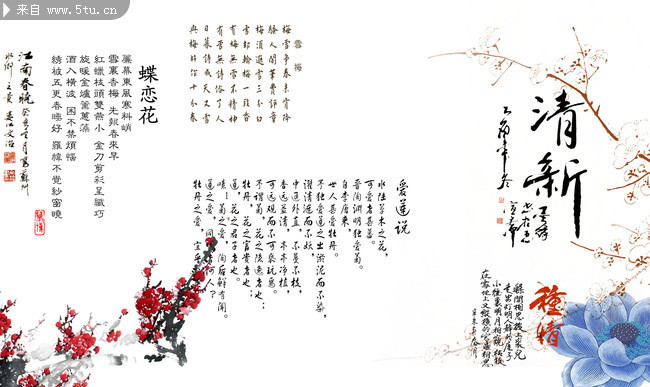 来自 www.5tu.cn
雪梅
梅雪爭春未肯降
騷人閣筆費評章
梅須遜雪三分白
雪却輸梅一段香
有梅無雪不精神
有雪無詩俗了人
日暮詩成天又雪
與梅併作十分春
蝶恋花
簾幕東風寒料峭
雪裏香梅 先報春來早
紅蠟枝頭雙燕小 金刀剪彩呈纖巧
旋暖金爐薰蕙藻
酒入橫波 困不禁煩惱
綉被五更春睡好 羅幃不覺紗窗曉
江南春晓
清新
爱莲说
水陆草木之花，
可爱者甚蕃。
晋陶渊明独爱菊。
自李唐来，
世人甚爱牡丹。
予独爱莲之出淤泥而不染，
濯清涟而不妖，
中通外直，不蔓不枝，
香远益清，亭亭净植，
可远观而不可亵玩焉。
予谓菊，花之隐逸者也；
牡丹，花之富贵者也；
莲，花之君子者也。
噫！菊之爱，陶后鲜有闻。
莲之爱，同予者何人？
牡丹之爱，宜乎
種情